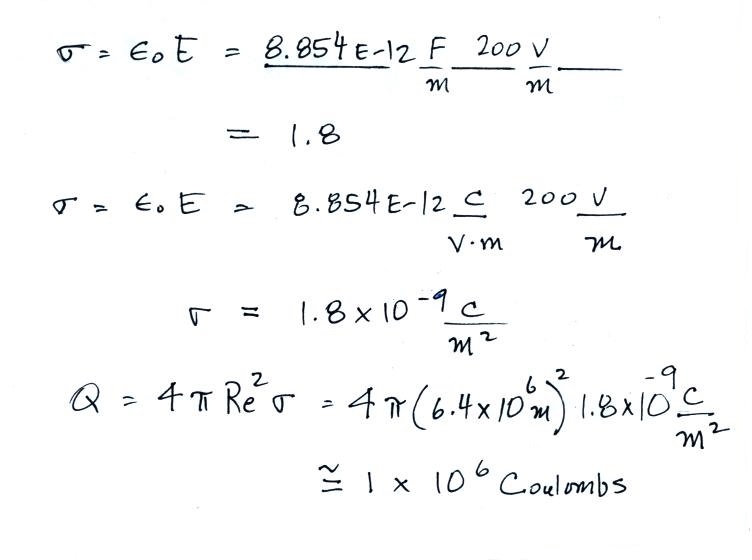 σ = ϵ₀E = 8.854E-12 F/m 200 V/m
= 1.8
σ = ϵ₀E = 8.854E-12 C/V·m 200 V/m
σ = 1.8 x 10⁻⁹ C/m²
Q = 4π Re² σ = 4π(6.4x10⁶m)² 1.8x10⁻⁹ C/m²
≅ 1 x 10⁶ Coulombs